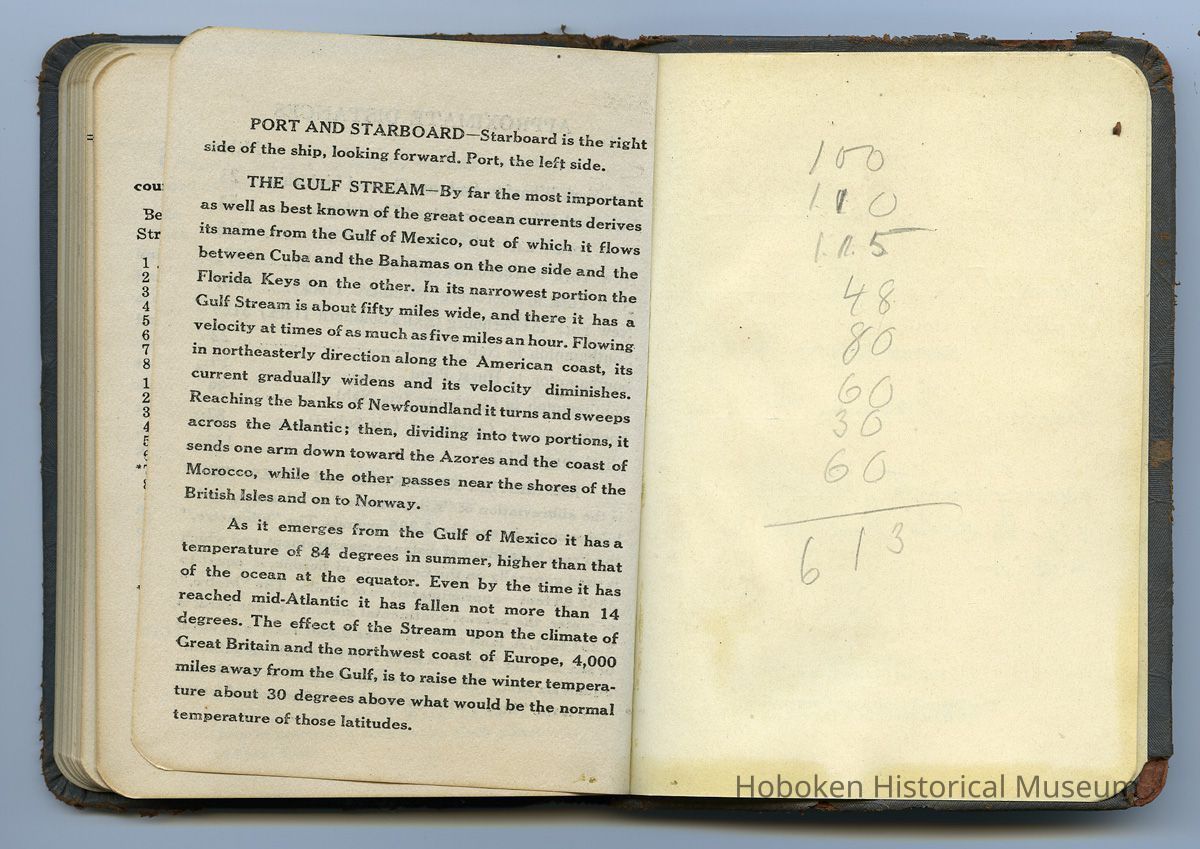 PORT AND STARBOARD—Starboard is the right
side of the ship, looking forward. Port, the left side.
THE GULF STREAM—By far the most important
as well as best known of the great ocean currents derives
its name from the Gulf of Mexico, out of which it flows
between Cuba and the Bahamas on the one side and the
Florida Keys on the other. In its narrowest portion the
Gulf Stream is about fifty miles wide, and there it has a
velocity at times of as much as five miles an hour. Flowing
in northeasterly direction along the American coast, its
current gradually widens and its velocity diminishes.
Reaching the banks of Newfoundland it turns and sweeps
across the Atlantic; then, dividing into two portions, it
sends one arm down toward the Azores and the coast of
Morocco, while the other passes near the shores of the
British Isles and on to Norway.
As it emerges from the Gulf of Mexico it has a
temperature of 84 degrees in summer, higher than that
of the ocean at the equator. Even by the time it has
reached mid-Atlantic it has fallen not more than 14
degrees. The effect of the Stream upon the climate of
Great Britain and the northwest coast of Europe, 4,000
miles away from the Gulf, is to raise the winter tempera-
ture about 30 degrees above what would be the normal
temperature of those latitudes.
cou
Be
Str
1
2
3
4
5
6
7
8
1
2
3
4
100
110
115
48
80
60
30
60
613
Hoboken Historical Museum